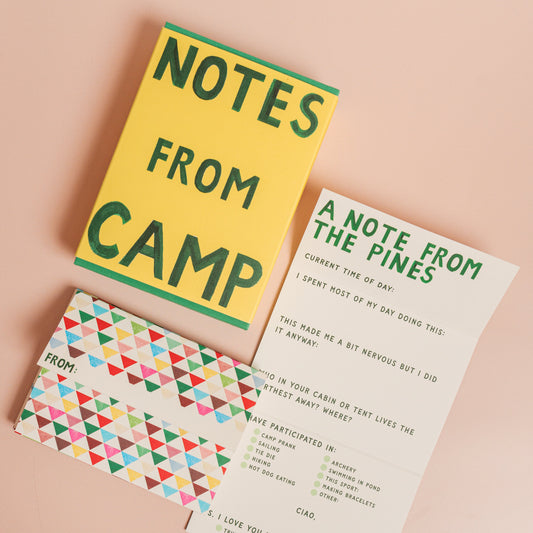 NOTES
FROM
CAMP
FROM:
A NOTE FROM
THE PINES
CURRENT TIME OF DAY:
I SPENT MOST OF MY DAY DOING THIS:
THIS MADE ME A BIT NERVOUS BUT I DID
IT ANYWAY:
IN YOUR CABIN OR TENT LIVES THE
AWAY? WHERE?
PARTICIPATED IN:
CAMP PRANK
SAILING
TIE DIE
HIKING
HOT DOG EATING
ARCHERY
SWIMMING IN POND
THIS SPORT:
MAKING BRACELETS
OTHER:
CIAO,
I LOVE YOU